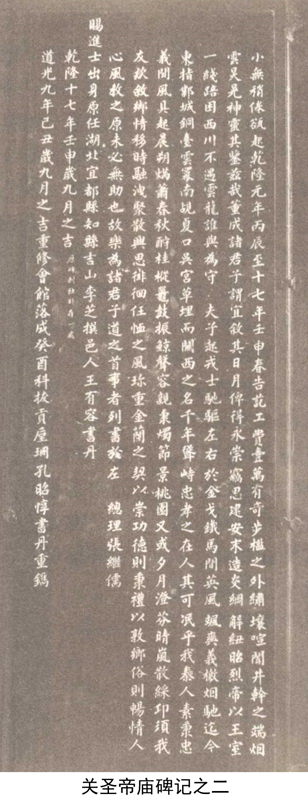 小無稍倦瓻起乾隆元年丙辰至十七年壬申春告竣工費壹萬有奇步櫩之外繡壤喧闐井幹之端烟
雲昊是神靈其鑒茲我董成諸君子謂宜敘其日月俾得永崇竊思建安末造炎綱解紐昭烈帝以王室
一綫踣困西川不遇雲龍誰與為守 夫子起戎士馳驅左右於金戈鐵馬間英風颯爽義檄烟馳迄今
東掎鄴城銅臺雲冪南覘夏口吳宮草埋而關西之名千年聳峙忠孝之在人其可泯乎我秦人素秉忠
義聞風具起晨朔焫蕭春秋酹桂嵷鼓振鯨聲容覯秉燭節景桃園又或夕月澄芬時嵐散綵印須我
友欵敘鄉情移時融洩聚散興思徘徊任恤之風珎重金蘭之契以崇功德則秉禮以敦鄉俗則暢情人
心風教之原未必無助也故樂為諸君子道之首事者列書於左 總理張繼儒
賜進士出身原任湖北宜都縣知縣吉山李芝撰邑人王有容書丹
乾隆十七年壬申歲九月之吉
道光九年己丑歲九月之吉重修會館落成癸酉科拔貢屋珊孔昭惇書丹重鐫
关圣帝庙碑记之二